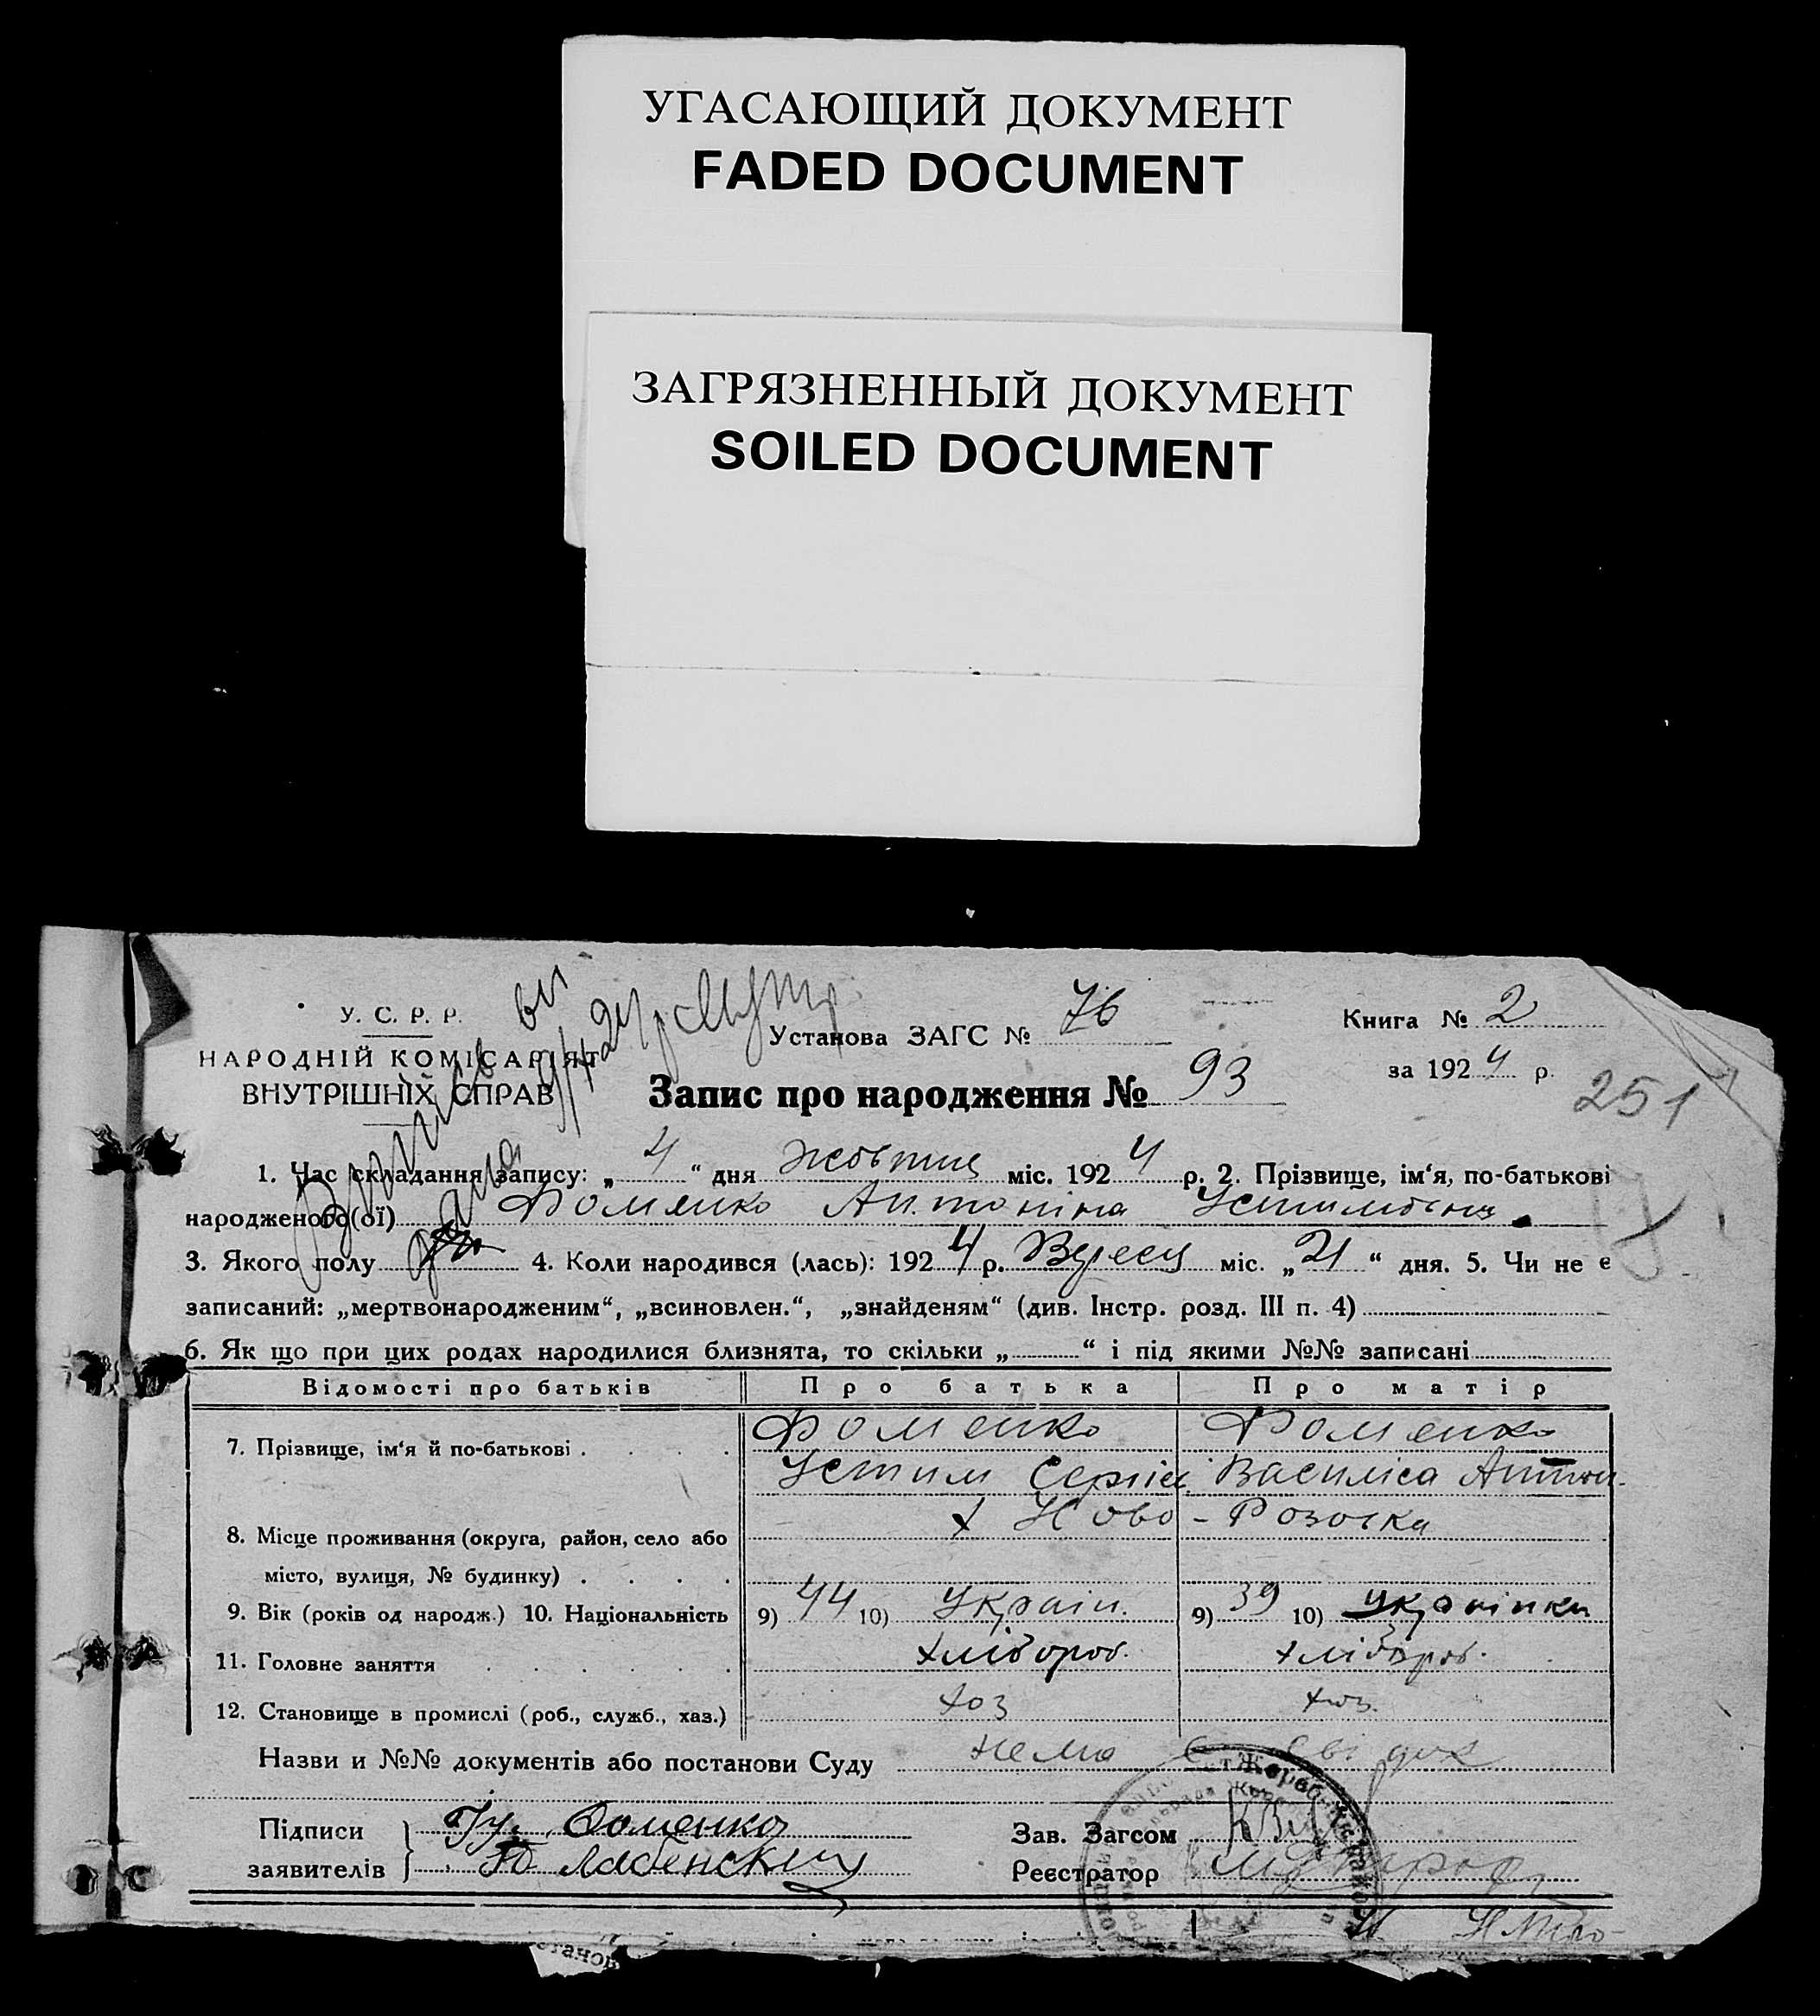 УГАСАЮЩИЙ ДОКУМЕНТ
FADED DOCUMENT
ЗАГРЯЗНЕННЫЙ ДОКУМЕНТ
SOILED DOCUMENT
У. С. Р. Р.
НАРОДНІЙ КОМІСАРІЯТ
ВНУТРІШНІХ СПРАВ
Установа ЗАГС № 76
Книга № 2
за 1924 р.
Запис про народження № 93
251
1. Час складання запису: „4“ дня жовтня міс. 1924 р. 2. Прізвище, ім‘я, по-батькові
народженого(ої) Фоменко Антоніна Устимовна
3. Якого полу 4. Коли народився (лась): 1924 р. Вересня міс. „21“ дня. 5. Чи не є
записаний: „мертвонародженим“, „всиновлен.“, „знайденям“ (див. Інстр. розд. III п. 4)
6. Як що при цих родах народилися близнята, то скільки „ “ і під якими №№ записані
Відомості про батьків Про батька Про матір
7. Прізвище, ім‘я й по-батькові Фоменко Фоменко
Устим Сергіев. Василіса Антон.
х Ново-Розовка
8. Місце проживання (округа, район, село або
місто, вулиця, № будинку)
9. Вік (років од народж.) 10. Національність 9) 44 10) Україн. 9) 39 10) Українка
11. Головне заняття хлібороб. хлібороб.
12. Становище в промислі (роб., служб., хаз.) хоз хоз.
Назви и №№ документів або постанови Суду нема
Підписи
заявителів
Фоменко
Зав. Загсом
Реєстратор